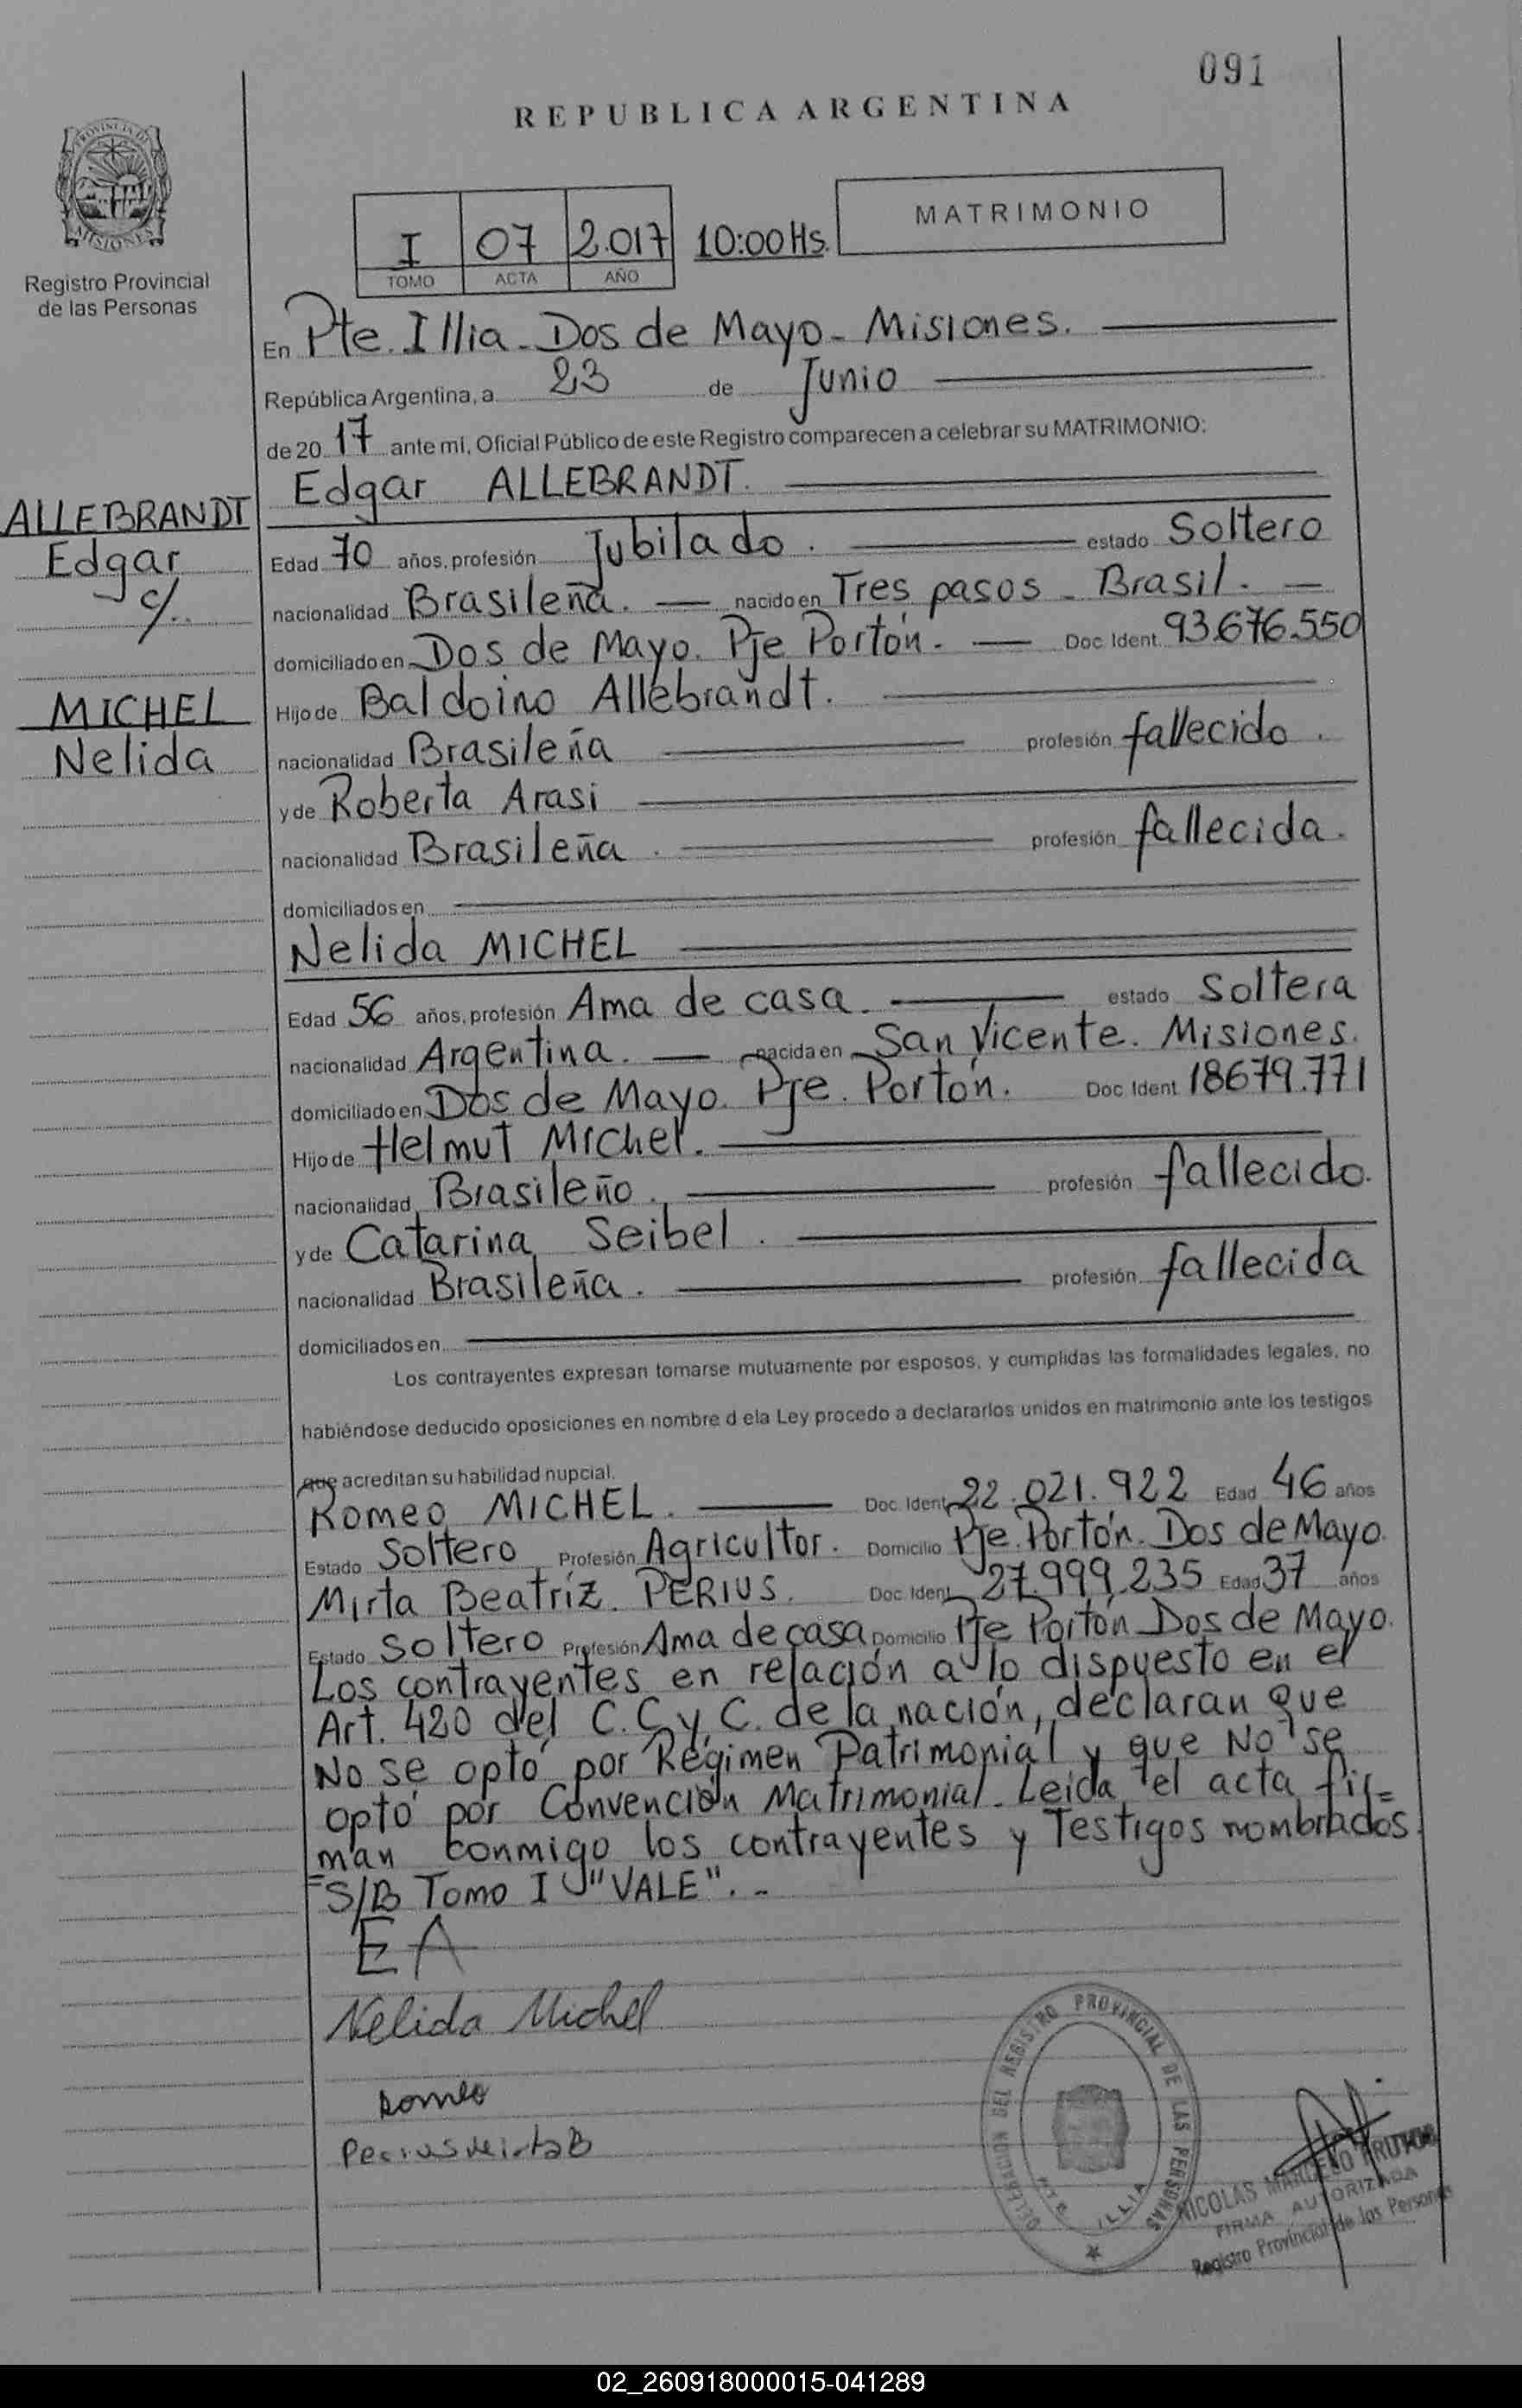 091
REPUBLICA ARGENTINA
PROVINCIA DE
MISIONES
Registro Provincial
de las Personas
I 07 2.017 10:00 Hs.
TOMO ACTA AÑO
MATRIMONIO
En Pte. Illia - Dos de Mayo - Misiones.
República Argentina, a 23 de Junio
de 20 17 ante mí, Oficial Público de este Registro comparecen a celebrar su MATRIMONIO:
Edgar ALLEBRANDT.
ALLEBRANDT
Edgar
c/..
MICHEL
Nelida
Edad 70 años, profesión Jubilado. estado Soltero
nacionalidad Brasileña. nacido en Tres pasos - Brasil.
domiciliado en Dos de Mayo. Pje Portón. Doc. Ident. 93.676.550
Hijo de Baldoino Allebrandt.
nacionalidad Brasileña profesión fallecido.
y de Roberta Arasi
nacionalidad Brasileña. profesión fallecida.
domiciliados en
Nelida MICHEL
Edad 56 años, profesión Ama de casa. estado Soltera
nacionalidad Argentina. nacida en San Vicente. Misiones.
domiciliado en Dos de Mayo. Pje. Portón. Doc. Ident. 18679.771
Hijo de Helmut Michel.
nacionalidad Brasileño. profesión fallecido.
y de Catarina Seibel.
nacionalidad Brasileña. profesión fallecida
domiciliados en
Los contrayentes expresan tomarse mutuamente por esposos, y cumplidas las formalidades legales, no
habiéndose deducido oposiciones en nombre d ela Ley procedo a declararlos unidos en matrimonio ante los testigos
que acreditan su habilidad nupcial.
Romeo MICHEL. Doc. Ident. 22.021.922 Edad 46 años
Estado Soltero Profesión Agricultor. Domicilio Pje. Portón. Dos de Mayo.
Mirta Beatriz. PERIUS. Doc. Ident. 27.999.235 Edad 37 años
Estado Soltero Profesión Ama de casa Domicilio Pje Portón Dos de Mayo.
Los contrayentes en relación a lo dispuesto en el
Art. 420 del C.C.y C. de la nación, declaran que
No se optó por Régimen Patrimonial y que No se
optó por Convención Matrimonial. Leída el acta fir=
=man conmigo los contrayentes y Testigos nombrados.
S/B Tomo I "VALE". -
EA
Nelida Michel
Romeo
Perius Mirta B
DELEGACION DEL REGISTRO PROVINCIAL DE LAS PERSONAS
PTE. ILLIA
NICOLAS MARCELO
FIRMA AUTORIZADA
Registro Provincial de las Personas
02_260918000015-041289